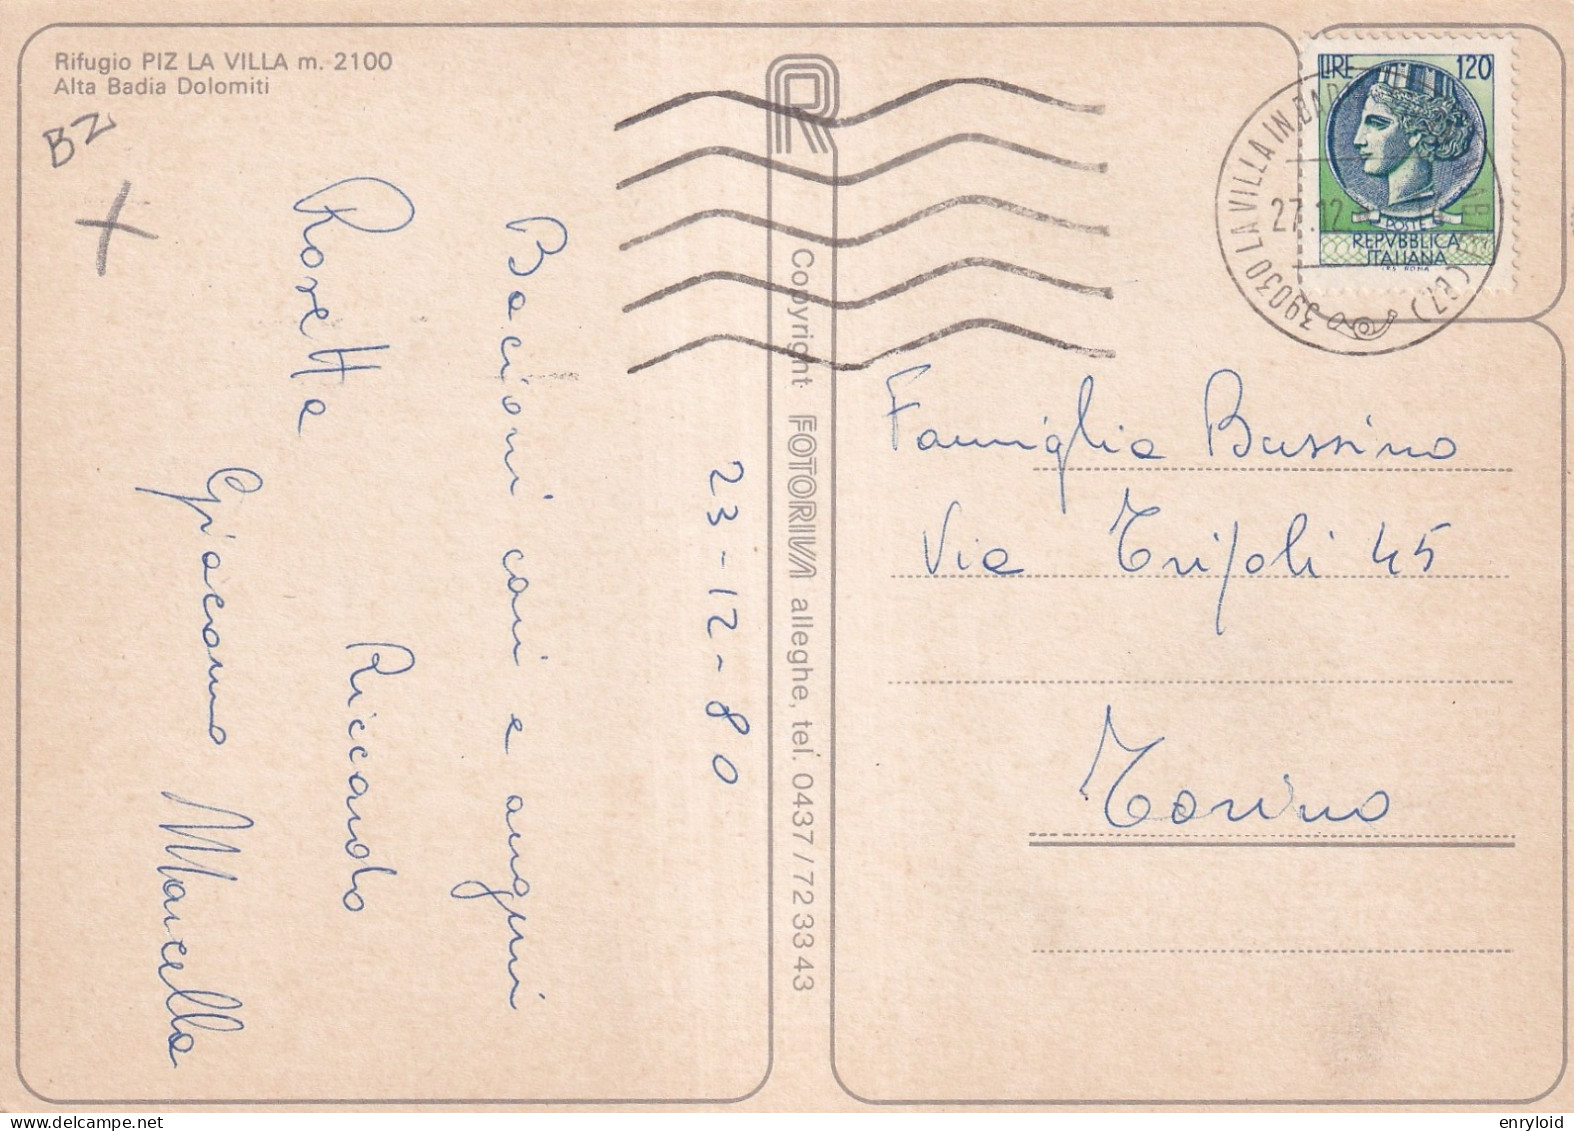 Rifugio PIZ LA VILLA m. 2100
Alta Badia Dolomiti
BZ
23-12-80
Bacioni cari e auguri
Rosetta
Riccardo
Giacomo Marcella
R
Copyright FOTORIVA alleghe, tel. 0437/723343
LIRE 120
POSTE
REPVBBLICA
ITALIANA
I.P.S. ROMA
39030 LA VILLA IN BAD
(BZ)
27.12
Famiglia Bussino
Via Tripoli 45
Torino
enryloid